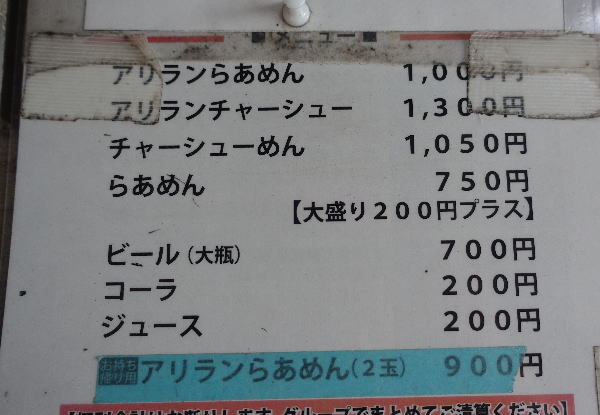 ■メニュー■
アリランらあめん 1,000円
アリランチャーシュー 1,300円
チャーシューめん 1,050円
らあめん 750円
【大盛り200円プラス】
ビール(大瓶) 700円
コーラ 200円
ジュース 200円
お持ち帰り用 アリランらあめん(2玉) 900円
【個別会計はお断りします。グループでまとめてご清算ください】